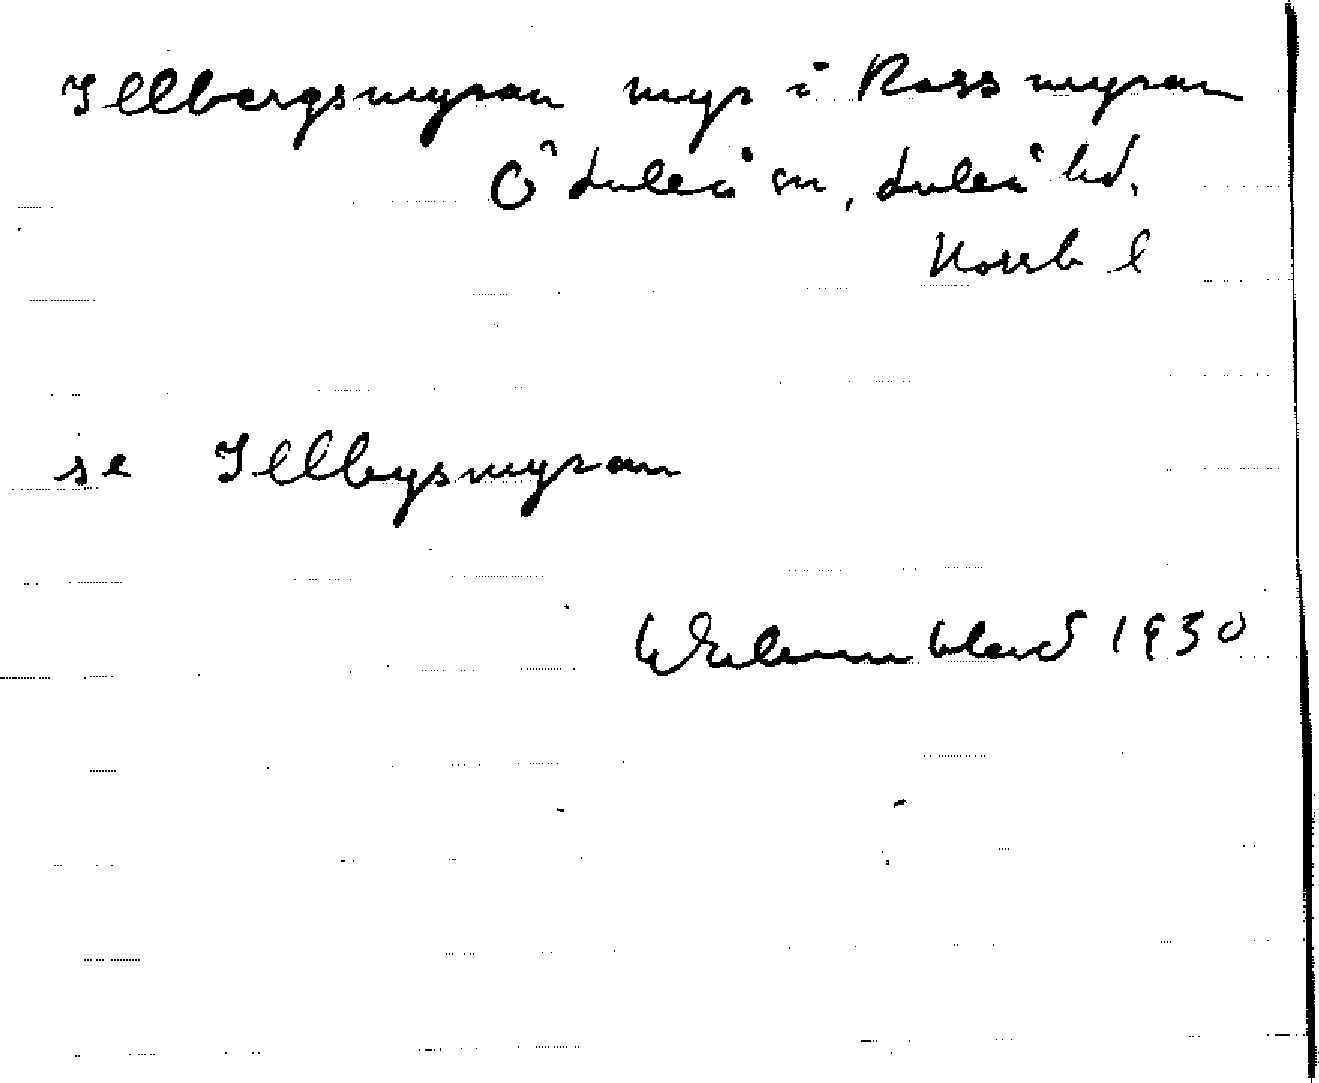 Illbergsmyran myr i Rossmyran
Ö Luleå sn, Luleå hd,
Norrb l
se Illbysmyran
1930